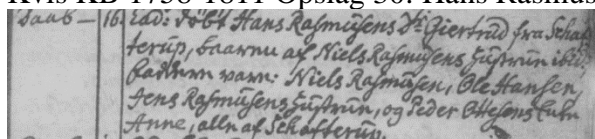 Kvis KB 1736-1811 Opslag 30: Hans Rasmus
Daab — 16. Ead: døbt Hans Rasmusens Dr: Giertrud fra Schaf
terup, baaren af Niels Rasmusens Hustrue ibid:
faddere vare: Niels Rasmusen, Ole Hansen,
Jens Rasmusens Hustrue, og Peder Ottesens
Anne, alle af Schafterup.